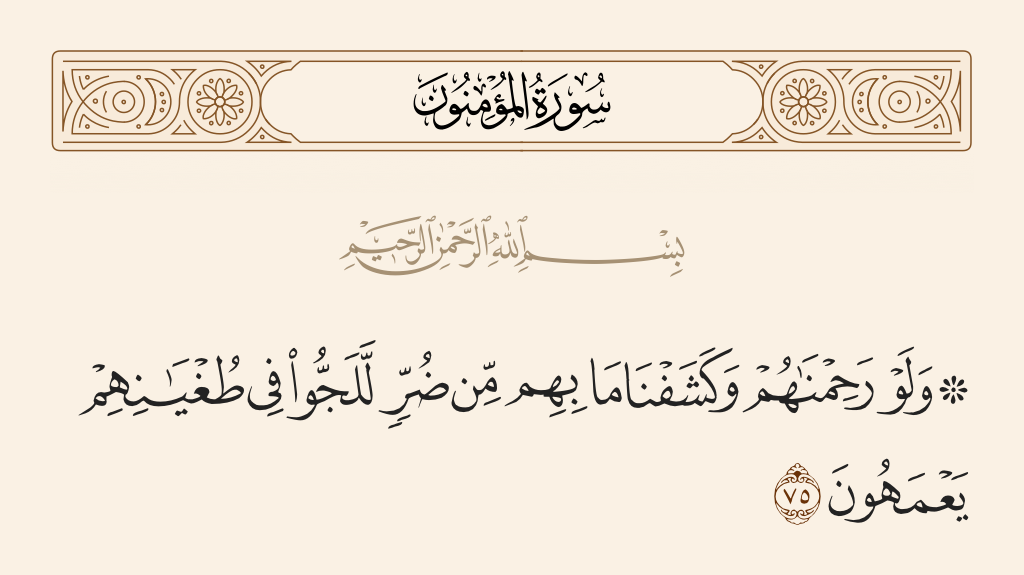 سُورَةُ المُؤْمِنُونَ
بِسْمِ ٱللَّهِ ٱلرَّحْمَٰنِ ٱلرَّحِيمِ
۞ وَلَوْ رَحِمْنَٰهُمْ وَكَشَفْنَا مَا بِهِم مِّن ضُرٍّ لَّلَجُّوا۟ فِى طُغْيَـٰنِهِمْ
يَعْمَهُونَ ٧٥